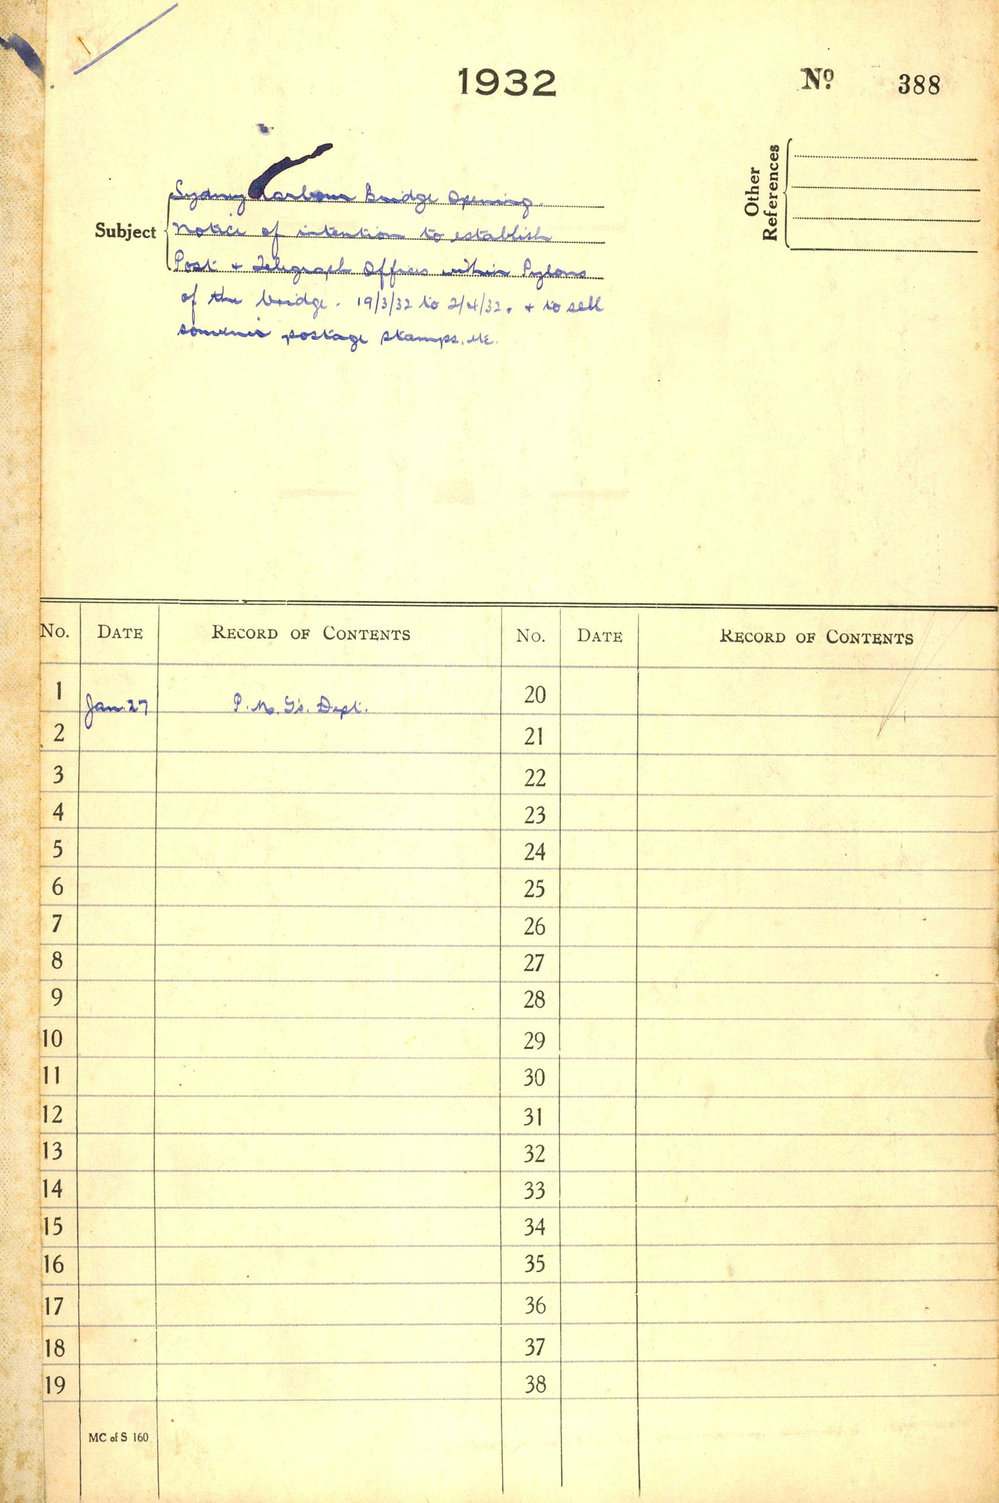 1932
No. 388
Other References
Subject
Sydney Harbour Bridge Opening.
Notice of intention to establish
Post & Telegraph Offices within Pylons
of the bridge. 19/3/32 to 2/4/32. & to sell
souvenir postage stamps, etc.
No. DATE RECORD OF CONTENTS No. DATE RECORD OF CONTENTS
1 Jan. 27 P.M.G's. Dept. 20
2 21
3 22
4 23
5 24
6 25
7 26
8 27
9 28
10 29
11 30
12 31
13 32
14 33
15 34
16 35
17 36
18 37
19 38
MC of S 160